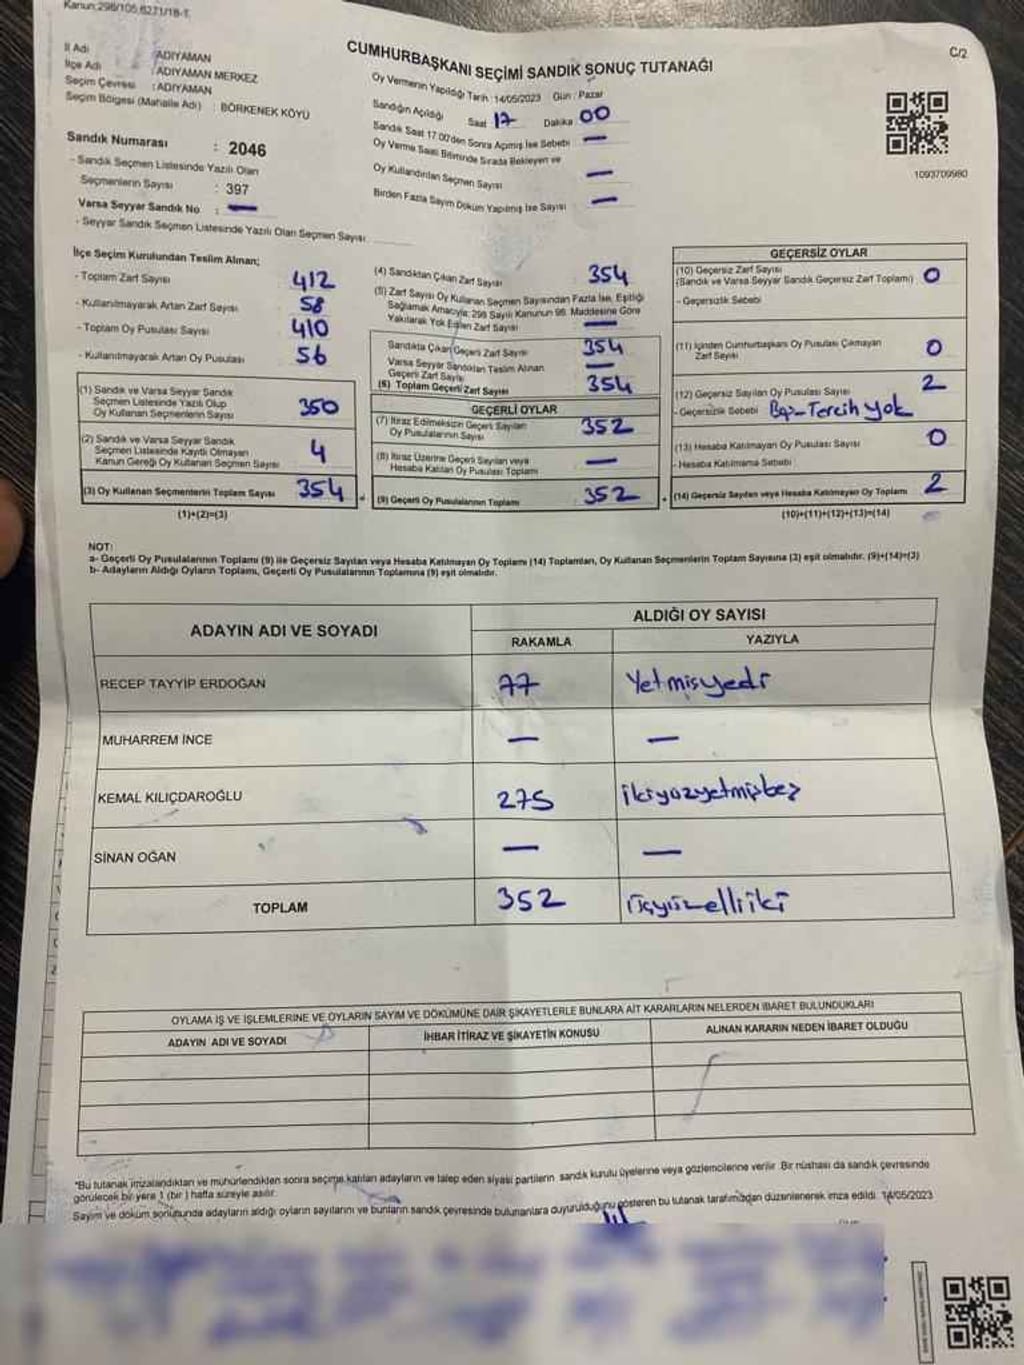 Kanun:298/105,6271/18-T.
C/2
CUMHURBAŞKANI SEÇİMİ SANDIK SONUÇ TUTANAĞI
İl Adı : ADIYAMAN
İlçe Adı : ADIYAMAN MERKEZ
Seçim Çevresi : ADIYAMAN
Seçim Bölgesi (Mahalle Adı) : BÖRKENEK KÖYÜ
Sandık Numarası : 2046
- Sandık Seçmen Listesinde Yazılı Olan
Seçmenlerin Sayısı : 397
Varsa Seyyar Sandık No : —
- Seyyar Sandık Seçmen Listesinde Yazılı Olan Seçmen Sayısı
Oy Vermenin Yapıldığı Tarih : 14/05/2023 Gün : Pazar
Sandığın Açıldığı Saat 17 Dakika 00
Sandık Saat 17.00'den Sonra Açılmış İse Sebebi —
Oy Verme Saati Bitiminde Sırada Bekleyen ve
Oy Kullandırılan Seçmen Sayısı —
Birden Fazla Sayım Döküm Yapılmış İse Sayısı —
1093709980
İlçe Seçim Kurulundan Teslim Alınan;
- Toplam Zarf Sayısı 412
- Kullanılmayarak Artan Zarf Sayısı 58
- Toplam Oy Pusulası Sayısı 410
- Kullanılmayarak Artan Oy Pusulası 56
(1) Sandık ve Varsa Seyyar Sandık
Seçmen Listesinde Yazılı Olup
Oy Kullanan Seçmenlerin Sayısı 350
(2) Sandık ve Varsa Seyyar Sandık
Seçmen Listesinde Kayıtlı Olmayan
Kanun Gereği Oy Kullanan Seçmen Sayısı 4
(3) Oy Kullanan Seçmenlerin Toplam Sayısı 354
(1)+(2)=(3)
(4) Sandıktan Çıkan Zarf Sayısı 354
(5) Zarf Sayısı Oy Kullanan Seçmen Sayısından Fazla İse, Eşitliği
Sağlamak Amacıyla; 298 Sayılı Kanunun 98. Maddesine Göre
Yakılarak Yok Edilen Zarf Sayısı —
Sandıkta Çıkan Geçerli Zarf Sayısı 354
Varsa Seyyar Sandıktan Teslim Alınan
Geçerli Zarf Sayısı —
(6) Toplam Geçerli Zarf Sayısı 354
GEÇERLİ OYLAR
(7) İtiraz Edilmeksizin Geçerli Sayılan
Oy Pusulalarının Sayısı 352
(8) İtiraz Üzerine Geçerli Sayılan veya
Hesaba Katılan Oy Pusulası Toplamı —
(9) Geçerli Oy Pusulalarının Toplamı 352
GEÇERSİZ OYLAR
(10) Geçersiz Zarf Sayısı
(Sandık ve Varsa Seyyar Sandık Geçersiz Zarf Toplamı) 0
- Geçersizlik Sebebi
(11) İçinden Cumhurbaşkanı Oy Pusulası Çıkmayan
Zarf Sayısı 0
(12) Geçersiz Sayılan Oy Pusulası Sayısı 2
- Geçersizlik Sebebi Boş-Tercih yok
(13) Hesaba Katılmayan Oy Pusulası Sayısı 0
- Hesaba Katılmama Sebebi
(14) Geçersiz Sayılan veya Hesaba Katılmayan Oy Toplamı 2
(10)+(11)+(12)+(13)=(14)
NOT:
a- Geçerli Oy Pusulalarının Toplamı (9) ile Geçersiz Sayılan veya Hesaba Katılmayan Oy Toplamı (14) Toplamları, Oy Kullanan Seçmenlerin Toplam Sayısına (3) eşit olmalıdır. (9)+(14)=(3)
b- Adayların Aldığı Oyların Toplamı, Geçerli Oy Pusulalarının Toplamına (9) eşit olmalıdır.
ADAYIN ADI VE SOYADI ALDIĞI OY SAYISI
RAKAMLA YAZIYLA
RECEP TAYYİP ERDOĞAN 77 Yetmişyedi
MUHARREM İNCE — —
KEMAL KILIÇDAROĞLU 275 ikiyüzyetmişbeş
SİNAN OĞAN — —
TOPLAM 352 üçyüzelliiki
OYLAMA İŞ VE İŞLEMLERİNE VE OYLARIN SAYIM VE DÖKÜMÜNE DAİR ŞİKAYETLERLE BUNLARA AİT KARARLARIN NELERDEN İBARET BULUNDUKLARI
ADAYIN ADI VE SOYADI İHBAR İTİRAZ VE ŞİKAYETİN KONUSU ALINAN KARARIN NEDEN İBARET OLDUĞU
*Bu tutanak imzalandıktan ve mühürlendikten sonra seçime katılan adayların ve talep eden siyasi partilerin sandık kurulu üyelerine veya gözlemcilerine verilir. Bir nüshası da sandık çevresinde
görülecek bir yere 1 (bir) hafta süreyle asılır.
Sayım ve döküm sonucunda adayların aldığı oyların sayılarını ve bunların sandık çevresinde bulunanlara duyurulduğunu gösteren bu tutanak tarafımızdan düzenlenerek imza edildi. 14/05/2023